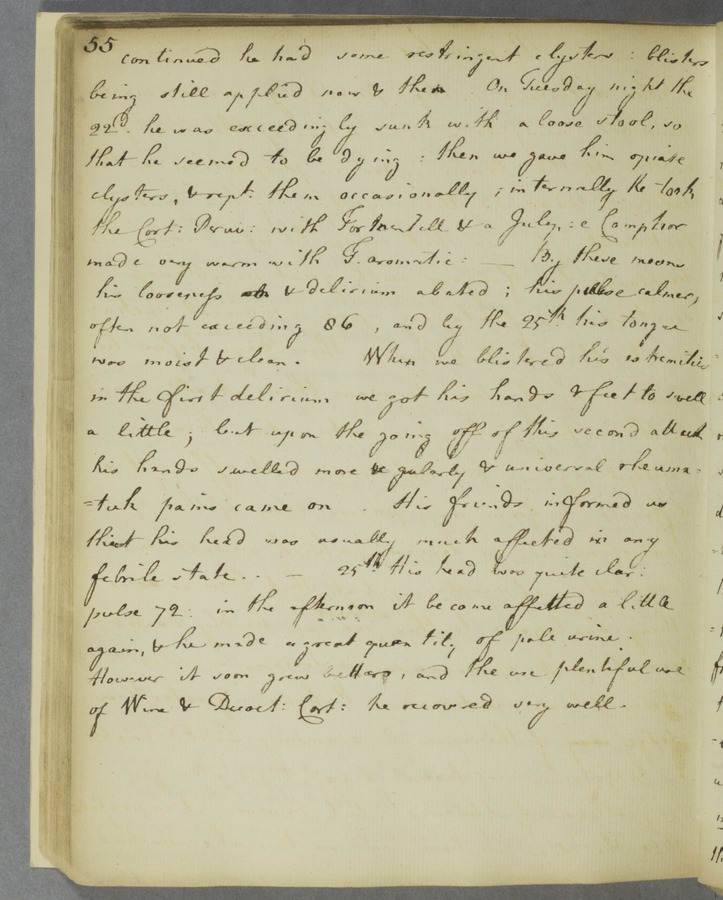 55
continued he had some restringent clysters : blisters
being still applied now & then On Tuesday night the
22d. he was exceedingly sunk with a loose stool, so
that he seemed to be dying : then we gave him opiate
clysters, & rept. them occasionally ; internally he took
the Cort: Peruv: with & a Julep: e Camphor
made very warm with T. aromatic: — By these means
his looseness & delirium abated ; his pulse calmer,
often not exceeding 86 , and by the 25th his tongue
was moist & clean. When we blistered his extremities
in the first delirium we got his hands & feet to swell
a little ; but upon the going off of this second attack
his hands swelled more regularly & universal rheuma=
=tick pains came on . His friends informed us
that his head was usually much affected in any
febrile state . . — 25th His head was quite clear:
pulse 72: in the afternoon it became affected a little
again, & he made a great quantity of pale urine.
However it soon grew better, and the use plentiful use
of Wine & Decoct: Cort: he recovered very well.